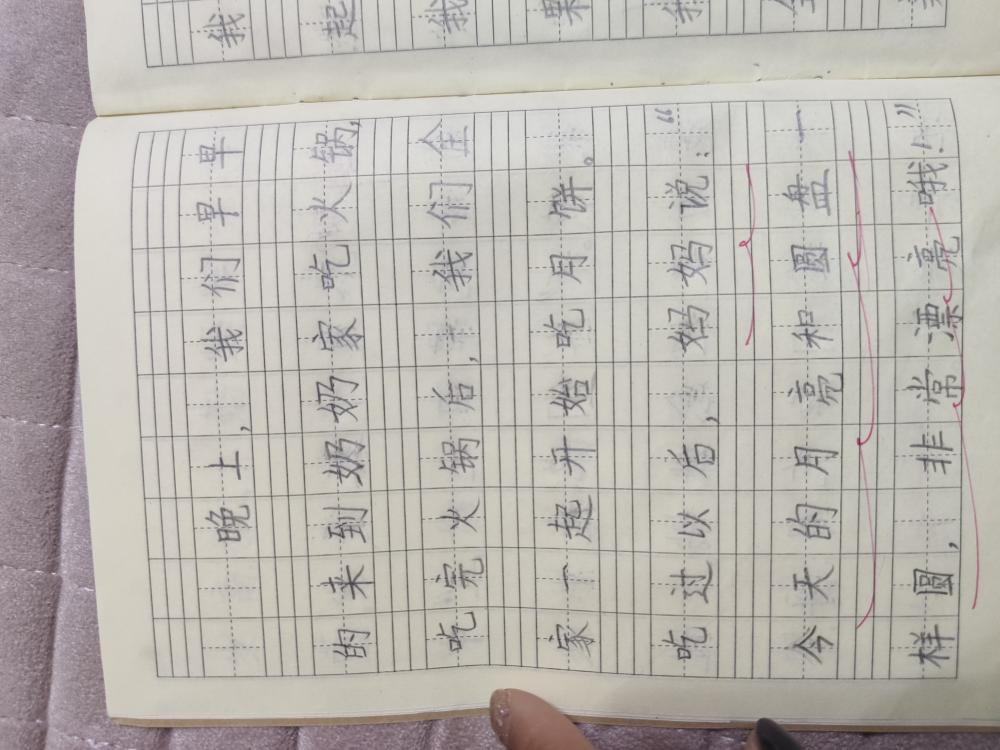 晚上,我们早早
的来到奶奶家吃火锅,
吃完火锅后,我们全
家一起开始吃月饼。
吃过以后,妈妈说:“
今天的月亮和圆盘一
样圆,非常漂亮哦!”
我
起
我
果
我